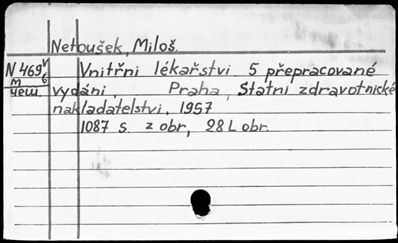 Netoušek, Miloš.
N 469 V/6 Vnitřni lékařstvi 5 přepracované
m/чеш. vydáni, Praha, Statni zdravotnické
nakladatelstvi, 1957
1087 s. z obr, 28 L obr.